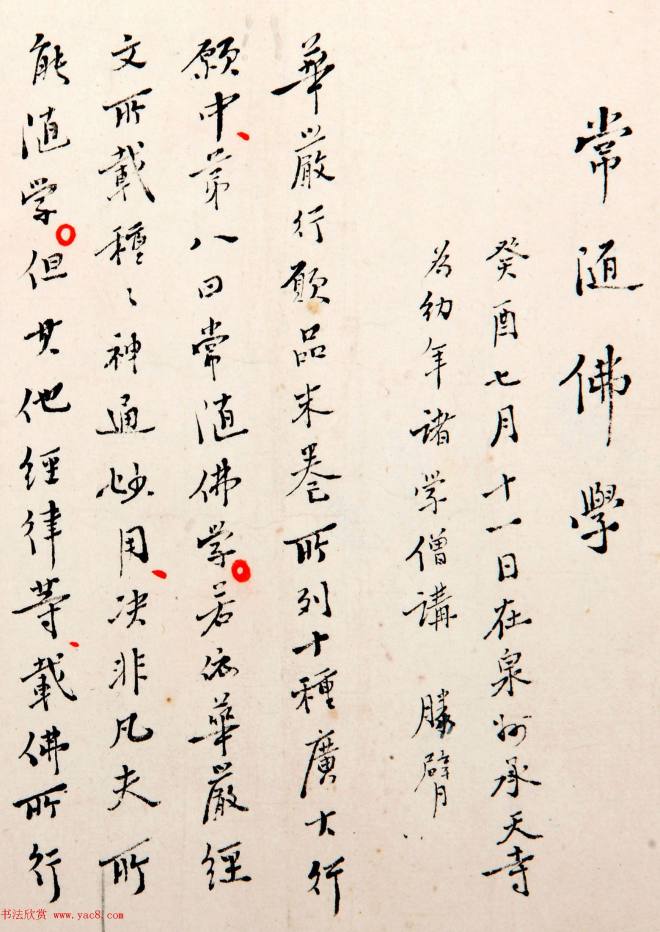 常随佛學
癸酉七月十一日在泉州承天寺
為幼年諸学僧講　勝臂
華嚴行願品末卷所列十種廣大行
願中、第八曰常随佛学。若依華嚴經
文所載種〻神通妙用、决非凡夫所
能随学。但其他經律等、載佛所行
书法欣赏 www.yac8.com